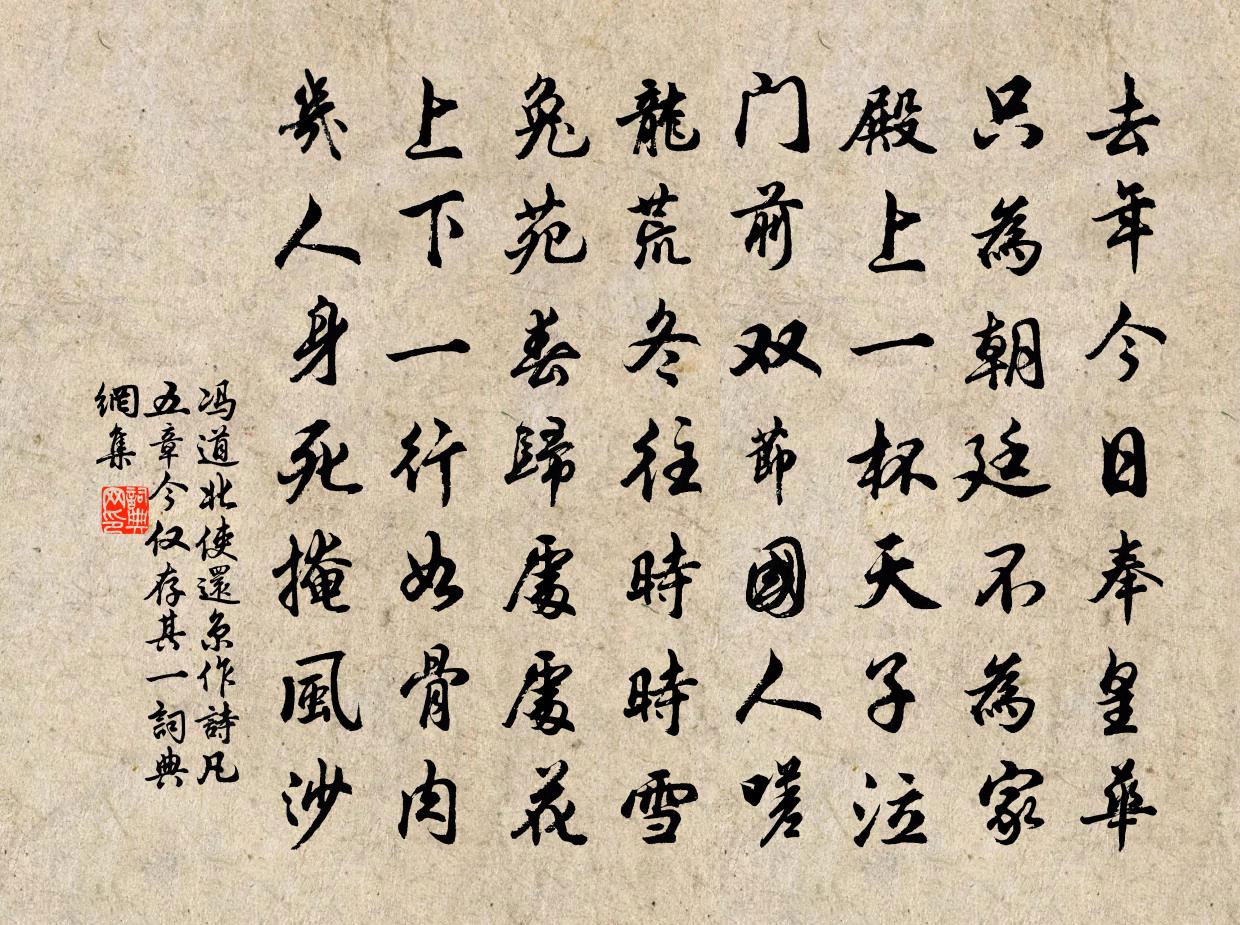 去年今日奉皇華
只為朝廷不為家
殿上一杯天子泣
门前双節國人嗟
龍荒冬往時時雪
兔苑春歸處處花
上下一行如骨肉
幾人身死掩風沙
冯道北使還京作詩凡
五章今仅存其一詞典
網集
詞典
网印